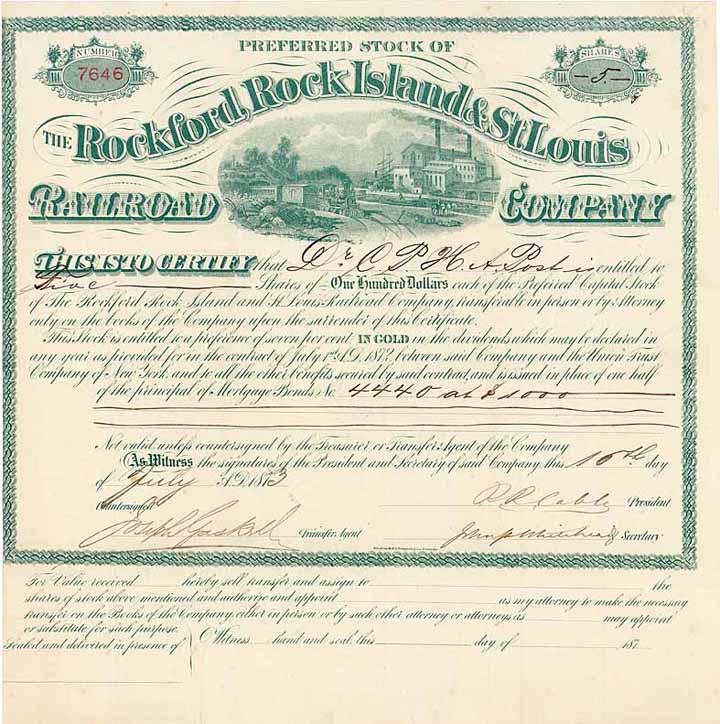 PREFERRED STOCK OF
NUMBER
7646
SHARES
-5-
THE ROCKFORD, ROCK ISLAND & ST. LOUIS
RAILROAD COMPANY
THIS IS TO CERTIFY that Dr. C P H A Post is entitled to
Five Shares of One Hundred Dollars each of the Preferred Capital Stock
of The Rockford Rock Island and St Louis Railroad Company, transferable in person or by Attorney
only on the books of the Company upon the surrender of this Certificate.
This Stock is entitled to a preference of seven per cent IN GOLD on the dividends which may be declared in
any year as provided for in the contract of July 1st A.D. 1872, between said Company and the Union Trust
Company of New York and to all the other benefits secured by said contract, and is issued in place of one half
of the principal of Mortgage Bonds No. 4440 at $1000
Not valid unless countersigned by the Treasurer or Transfer Agent of the Company
As Witness the signatures of the President and Secretary of said Company, this 10th day
of July A.D. 1873
Countersigned R R Cable President
Joseph Gaskell Transfer Agent John P Whitehead Secretary
For Value received hereby sell, transfer and assign to the
shares of stock above mentioned and authorize and appoint as my attorney to make the necessary
transfer on the Books of the Company, either in person or by such other attorney or attorneys as may appoint
or substitute for such purpose.
Sealed and delivered in presence of Witness hand and seal, this day of 187